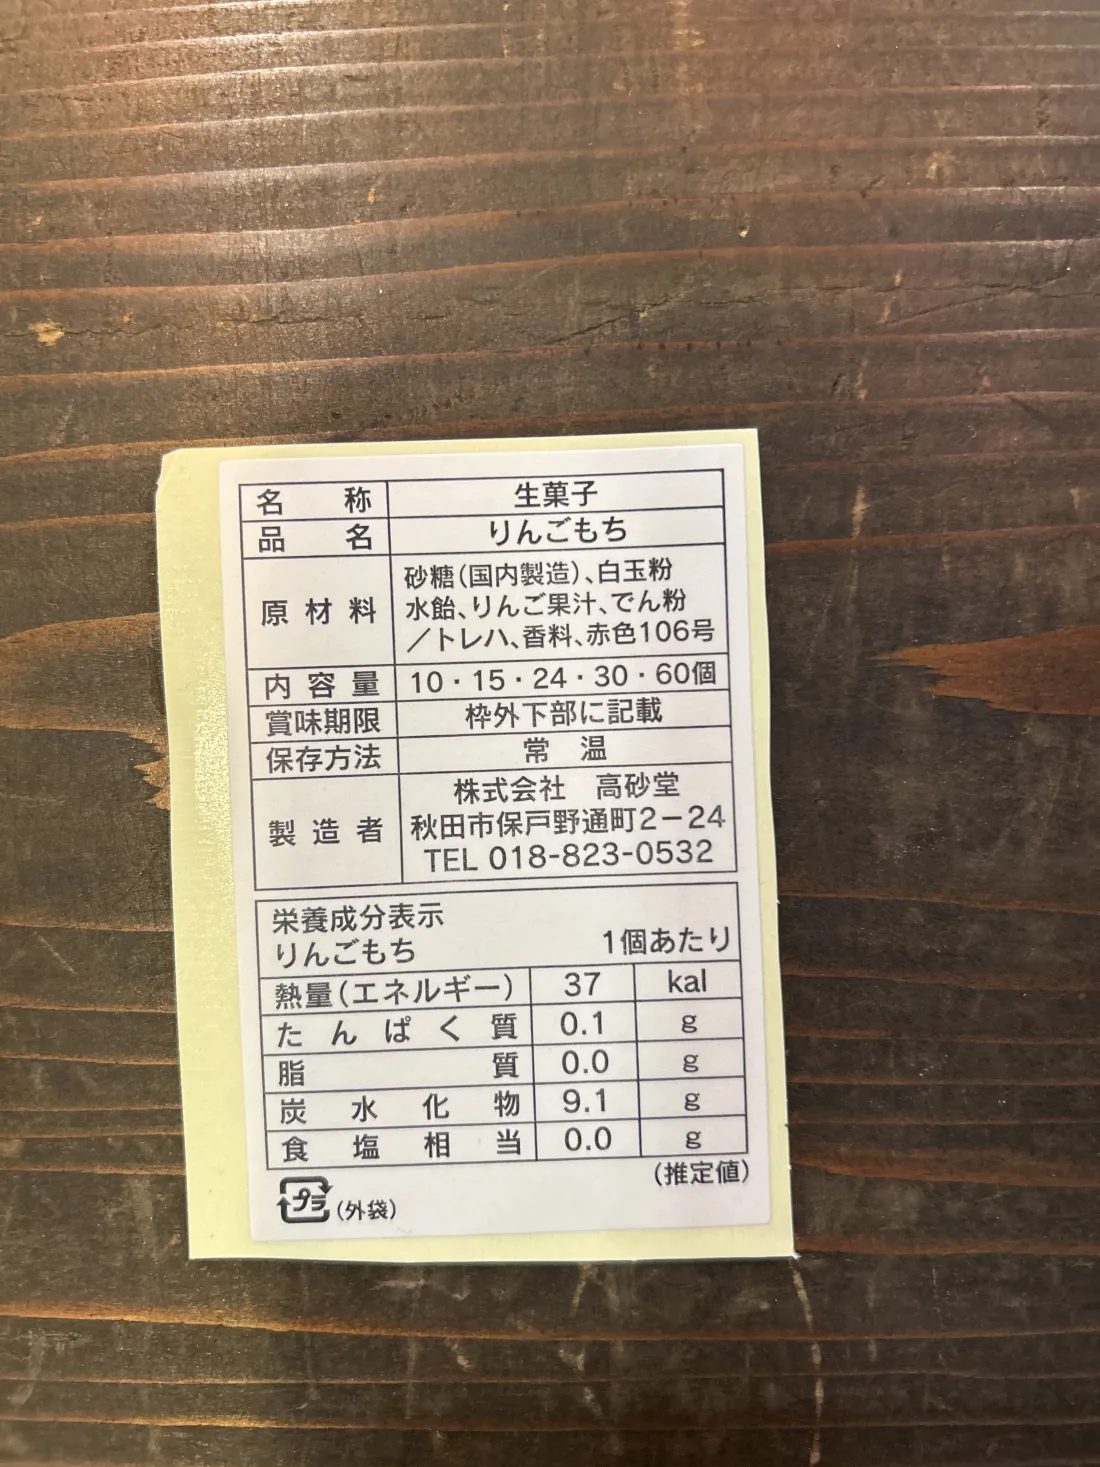 名称 生菓子
品名 りんごもち
原材料 砂糖(国内製造)、白玉粉
水飴、りんご果汁、でん粉
／トレハ、香料、赤色106号
内容量 10・15・24・30・60個
賞味期限 枠外下部に記載
保存方法 常温
製造者 株式会社 高砂堂
秋田市保戸野通町2－24
TEL 018-823-0532
栄養成分表示
りんごもち 1個あたり
熱量(エネルギー) 37 kal
たんぱく質 0.1 g
脂質 0.0 g
炭水化物 9.1 g
食塩相当 0.0 g
(推定値)
プラ (外袋)